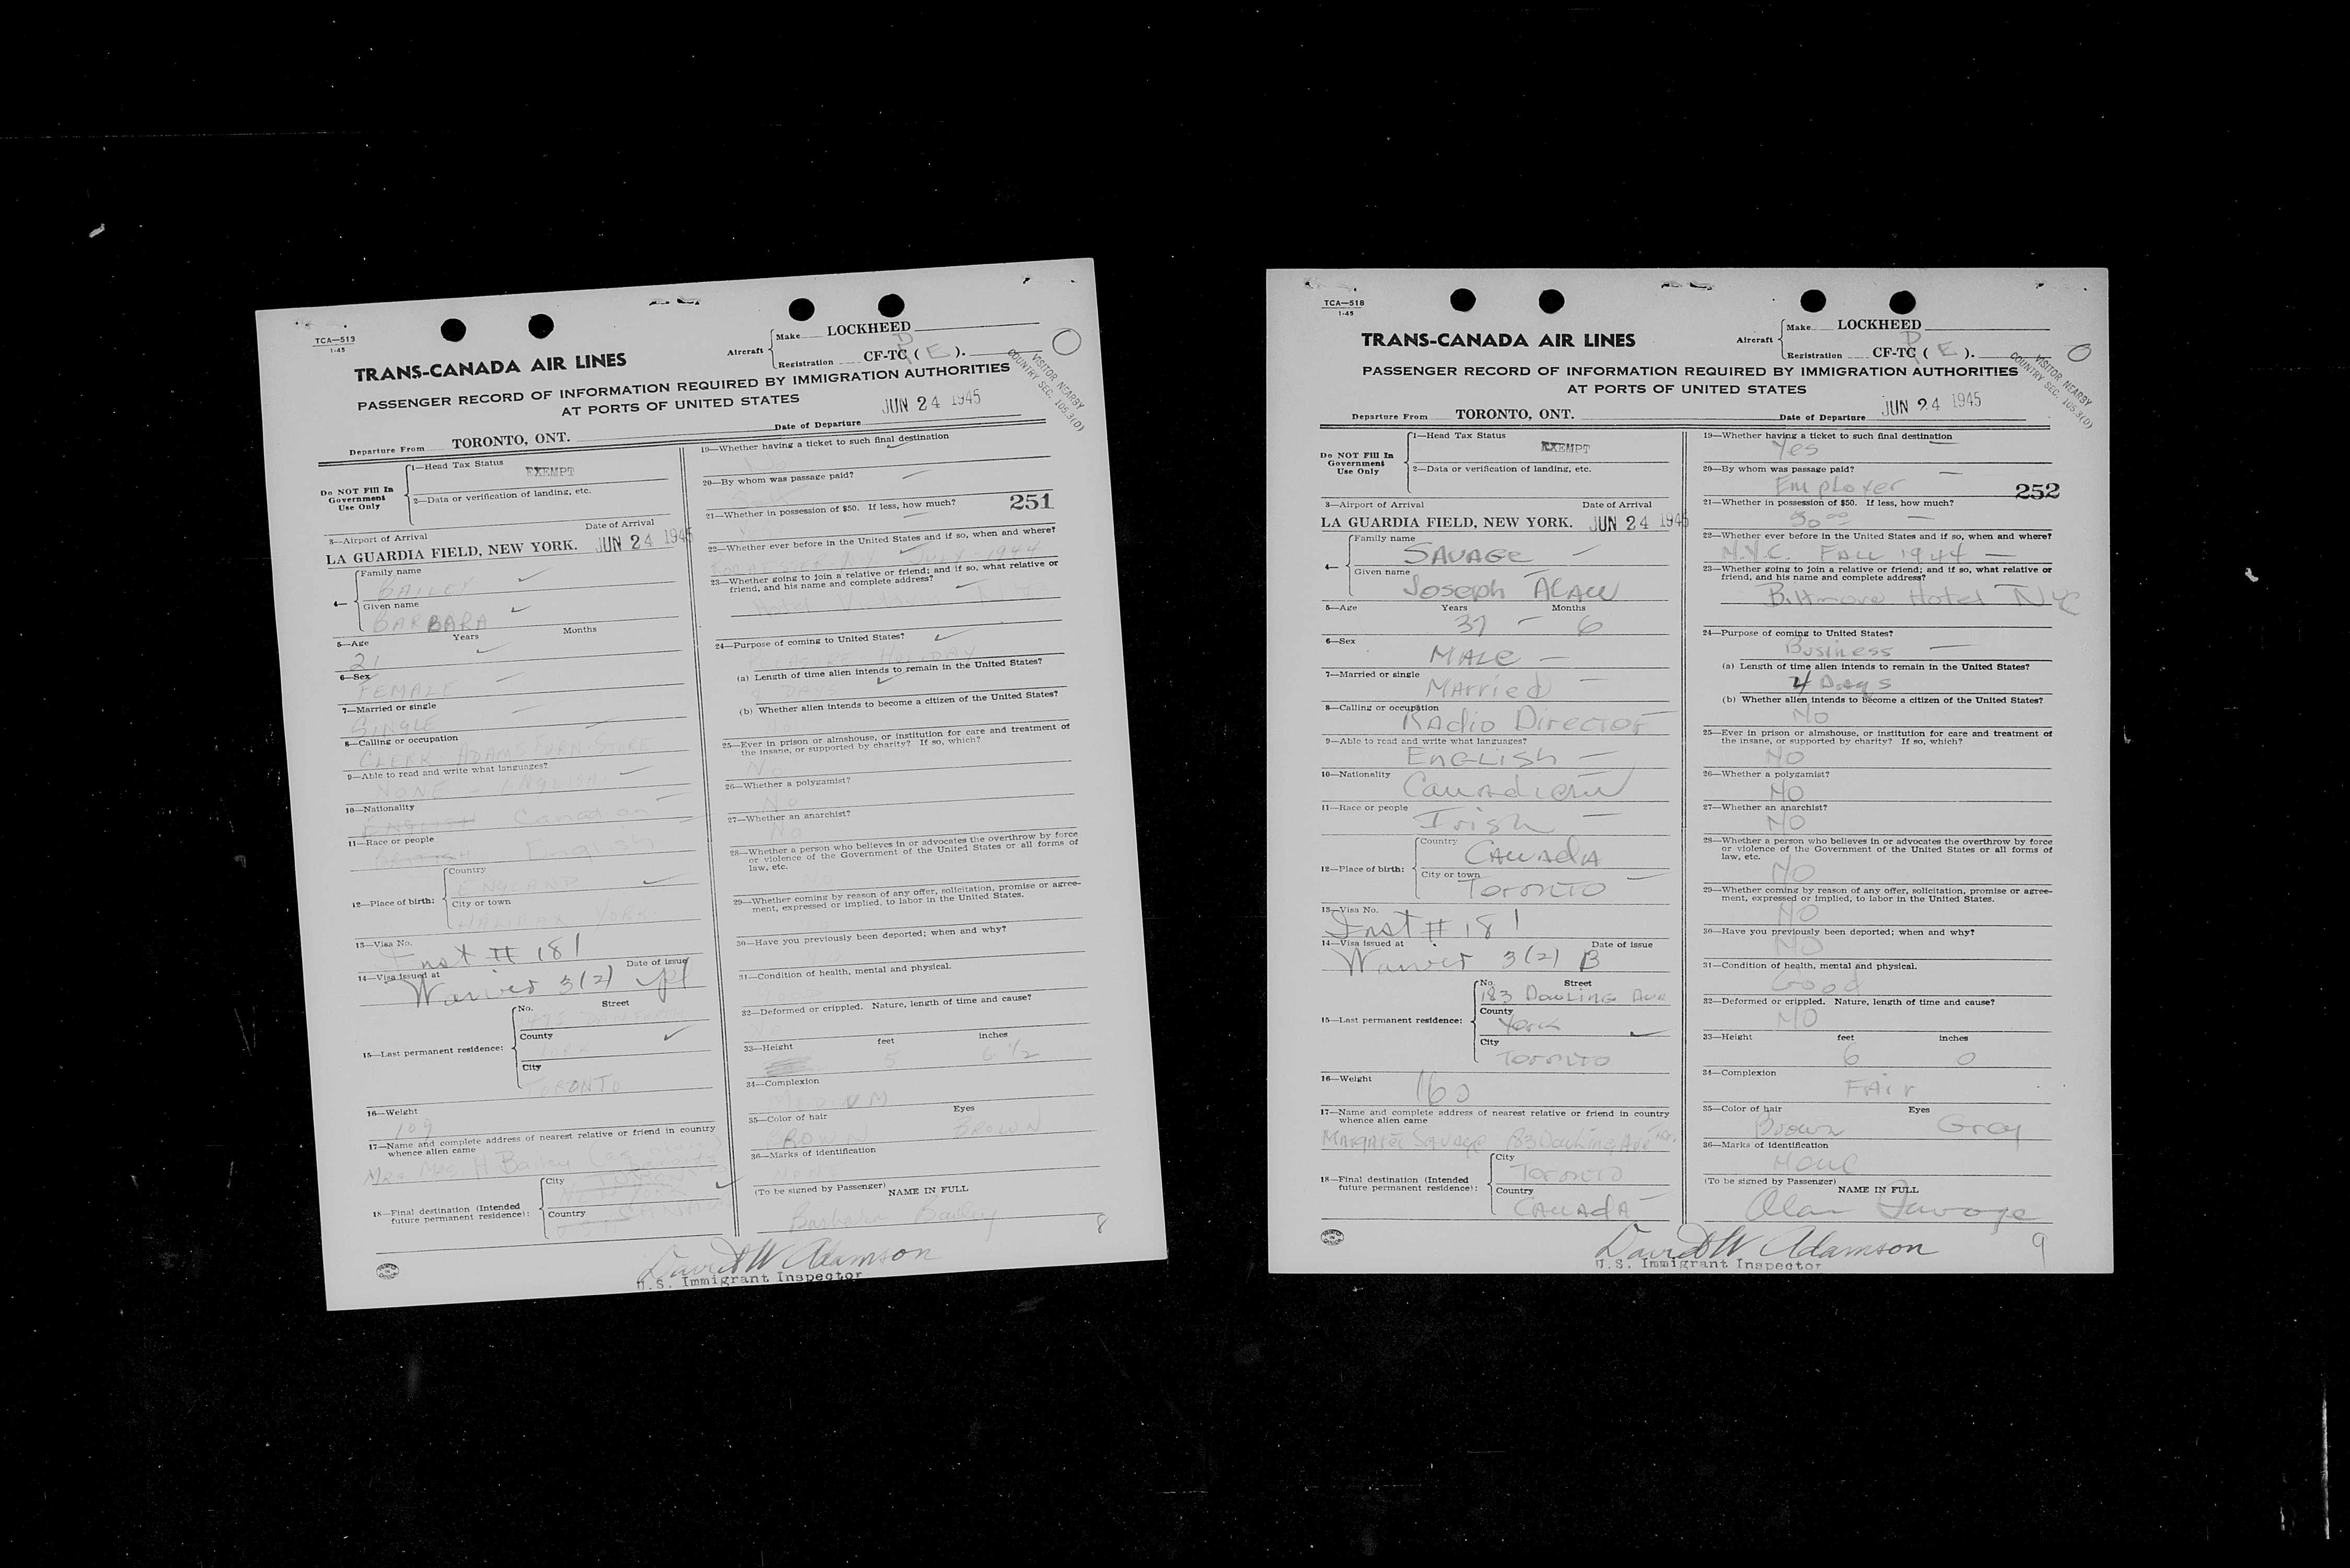 TCA—513
1-45
TRANS-CANADA AIR LINES
Aircraft
Make LOCKHEED
Registration CF-TC ( E ).
PASSENGER RECORD OF INFORMATION REQUIRED BY IMMIGRATION AUTHORITIES
AT PORTS OF UNITED STATES
VISITOR NEARBY
COUNTRY SEC. 105.3(D)
Departure From TORONTO, ONT.
Date of Departure JUN 24 1945
Do NOT Fill In
Government
Use Only
1—Head Tax Status
EXEMPT
2—Data or verification of landing, etc.
3—Airport of Arrival
Date of Arrival
LA GUARDIA FIELD, NEW YORK. JUN 24 1945
4—
Family name
BAILEY
Given name
BARBARA
5—Age Years Months
21
6—Sex
FEMALE
7—Married or single
SINGLE
8—Calling or occupation
CLERK ADAMS FURN. STORE
9—Able to read and write what languages?
NONE - ENGLISH
10—Nationality
ENGLISH Canadian
11—Race or people
BRITISH English
12—Place of birth:
Country
ENGLAND
City or town
HALIFAX YORK.
13—Visa No.
Inst # 181
14—Visa issued at Date of issue
Waiver 3(2)
15—Last permanent residence:
No. Street
County
YORK
City
TORONTO
16—Weight
109
17—Name and complete address of nearest relative or friend in country
whence alien came
Mrs. H Bailey
18—Final destination (Intended
future permanent residence):
City
TORONTO
Country
CANADA
19—Whether having a ticket to such final destination
No
20—By whom was passage paid?
251
21—Whether in possession of $50. If less, how much?
22—Whether ever before in the United States and if so, when and where?
JULY - 1944
23—Whether going to join a relative or friend; and if so, what relative or
friend, and his name and complete address?
Hotel
24—Purpose of coming to United States?
PLEASURE HOLIDAY
(a) Length of time alien intends to remain in the United States?
DAYS
(b) Whether alien intends to become a citizen of the United States?
25—Ever in prison or almshouse, or institution for care and treatment of
the insane, or supported by charity? If so, which?
No
26—Whether a polygamist?
No
27—Whether an anarchist?
No
28—Whether a person who believes in or advocates the overthrow by force
or violence of the Government of the United States or all forms of
law, etc.
No
29—Whether coming by reason of any offer, solicitation, promise or agree-
ment, expressed or implied, to labor in the United States.
30—Have you previously been deported; when and why?
31—Condition of health, mental and physical.
32—Deformed or crippled. Nature, length of time and cause?
33—Height feet inches
5 6 1/2
34—Complexion
MEDIUM
35—Color of hair Eyes
BROWN BROWN
36—Marks of identification
(To be signed by Passenger) NAME IN FULL
Barbara Bailey
8
David W Adamson
U.S. Immigrant Inspector
TCA—518
1-45
TRANS-CANADA AIR LINES
Aircraft
Make LOCKHEED
Registration CF-TC ( E ).
PASSENGER RECORD OF INFORMATION REQUIRED BY IMMIGRATION AUTHORITIES
AT PORTS OF UNITED STATES
VISITOR NEARBY
COUNTRY SEC. 105.3(D)
Departure From TORONTO, ONT.
Date of Departure JUN 24 1945
Do NOT Fill In
Government
Use Only
1—Head Tax Status
EXEMPT
2—Data or verification of landing, etc.
3—Airport of Arrival
Date of Arrival
LA GUARDIA FIELD, NEW YORK. JUN 24 1945
4—
Family name
SAVAGE
Given name
Joseph ALAN
5—Age Years Months
37 - 6
6—Sex
MALE
7—Married or single
MArried
8—Calling or occupation
RAdio Director
9—Able to read and write what languages?
ENGLISH
10—Nationality
Canadian
11—Race or people
Irish
12—Place of birth:
Country
CANADA
City or town
Toronto
13—Visa No.
Inst # 181
14—Visa issued at Date of issue
Waiver 3(2) B
15—Last permanent residence:
No. Street
183 Dowling Ave
County
York
City
Toronto
16—Weight
160
17—Name and complete address of nearest relative or friend in country
whence alien came
Margaret Savage 183 Dowling Ave Tor.
18—Final destination (Intended
future permanent residence):
City
Toronto
Country
CANADA
19—Whether having a ticket to such final destination
Yes
20—By whom was passage paid?
Employer
252
21—Whether in possession of $50. If less, how much?
50 00
22—Whether ever before in the United States and if so, when and where?
N.Y.C. FALL 1944
23—Whether going to join a relative or friend; and if so, what relative or
friend, and his name and complete address?
Biltmore Hotel NYC
24—Purpose of coming to United States?
Business
(a) Length of time alien intends to remain in the United States?
4 Days
(b) Whether alien intends to become a citizen of the United States?
No
25—Ever in prison or almshouse, or institution for care and treatment of
the insane, or supported by charity? If so, which?
NO
26—Whether a polygamist?
NO
27—Whether an anarchist?
NO
28—Whether a person who believes in or advocates the overthrow by force
or violence of the Government of the United States or all forms of
law, etc.
NO
29—Whether coming by reason of any offer, solicitation, promise or agree-
ment, expressed or implied, to labor in the United States.
NO
30—Have you previously been deported; when and why?
NO
31—Condition of health, mental and physical.
Good
32—Deformed or crippled. Nature, length of time and cause?
NO
33—Height feet inches
6 0
34—Complexion
FAir
35—Color of hair Eyes
Brown Gray
36—Marks of identification
None
(To be signed by Passenger) NAME IN FULL
Alan Savage
9
David W Adamson
U.S. Immigrant Inspector